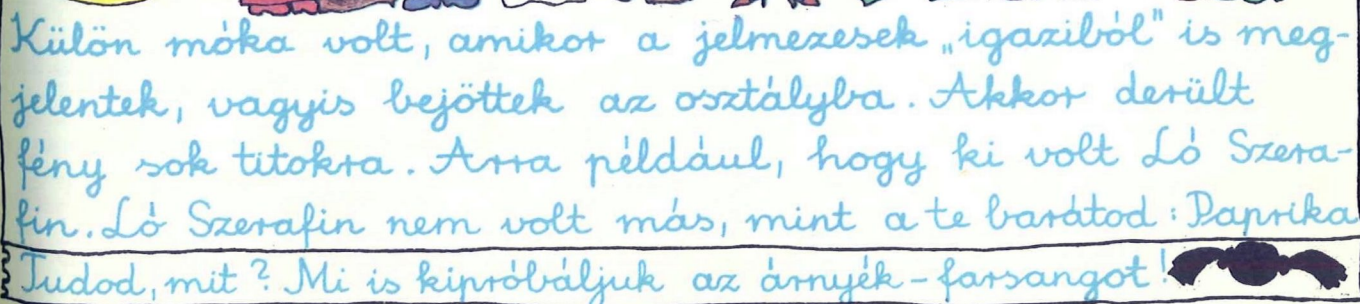 Külön móka volt, amikor a jelmezesek „igaziból" is meg-
jelentek, vagyis bejöttek az osztályba. Akkor derült
fény sok titokra. Arra például, hogy ki volt Ló Szera-
fin. Ló Szerafin nem volt más, mint a te barátod: Paprika
Tudod, mit? Mi is kipróbáljuk az árnyék-farsangot!